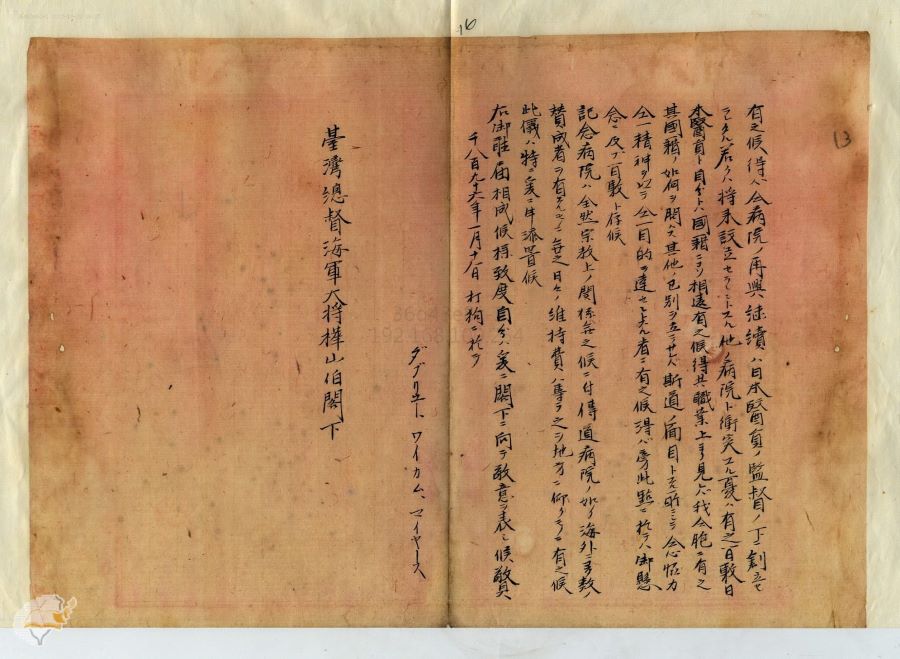 16
13
有之候得バ仝病院ノ再興継續ハ日本醫員ノ監督ノ下ニ創立セ
ラレタル若クハ将来設立セラレントスル他ノ病院ト衝突スル憂ハ有之間敷日
本醫員ト自分トハ國籍ニコソ相違有之候得共職業上ヨリ見レバ我仝胞ニ有之
其國籍ノ如何ヲ問ハズ其他ノ色別ヲ立テズ斯道ノ面目トスル所ニシテ仝心協力
仝一精神ヲ以テ仝一目的ヲ達セントスル者ニ有之候得バ此點ニ於テハ御懸
念ニ及ブ間敷ト存候
記念病院ハ全然宗教上ノ関係無之候ニ付傳道病院ノ如ク海外ニ多数ノ
賛成者ヲ有スルコトナク無之日々ノ維持費ハ専ラ之ヲ地方ニ仰クモノニ有之候
此儀ハ特ニ爰ニ申添置候
右御聴届相成候様致度自分ハ爰ニ閣下ニ向テ敬意ヲ表シ候敬具
千八百九十六年一月十八日 打狗ニ於テ
ダブリユー、ワイカム、マイヤース
臺灣總督海軍大将樺山伯閣下